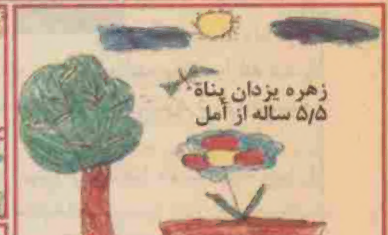 زهره یزدان پناة
۵/۵ ساله از آمل